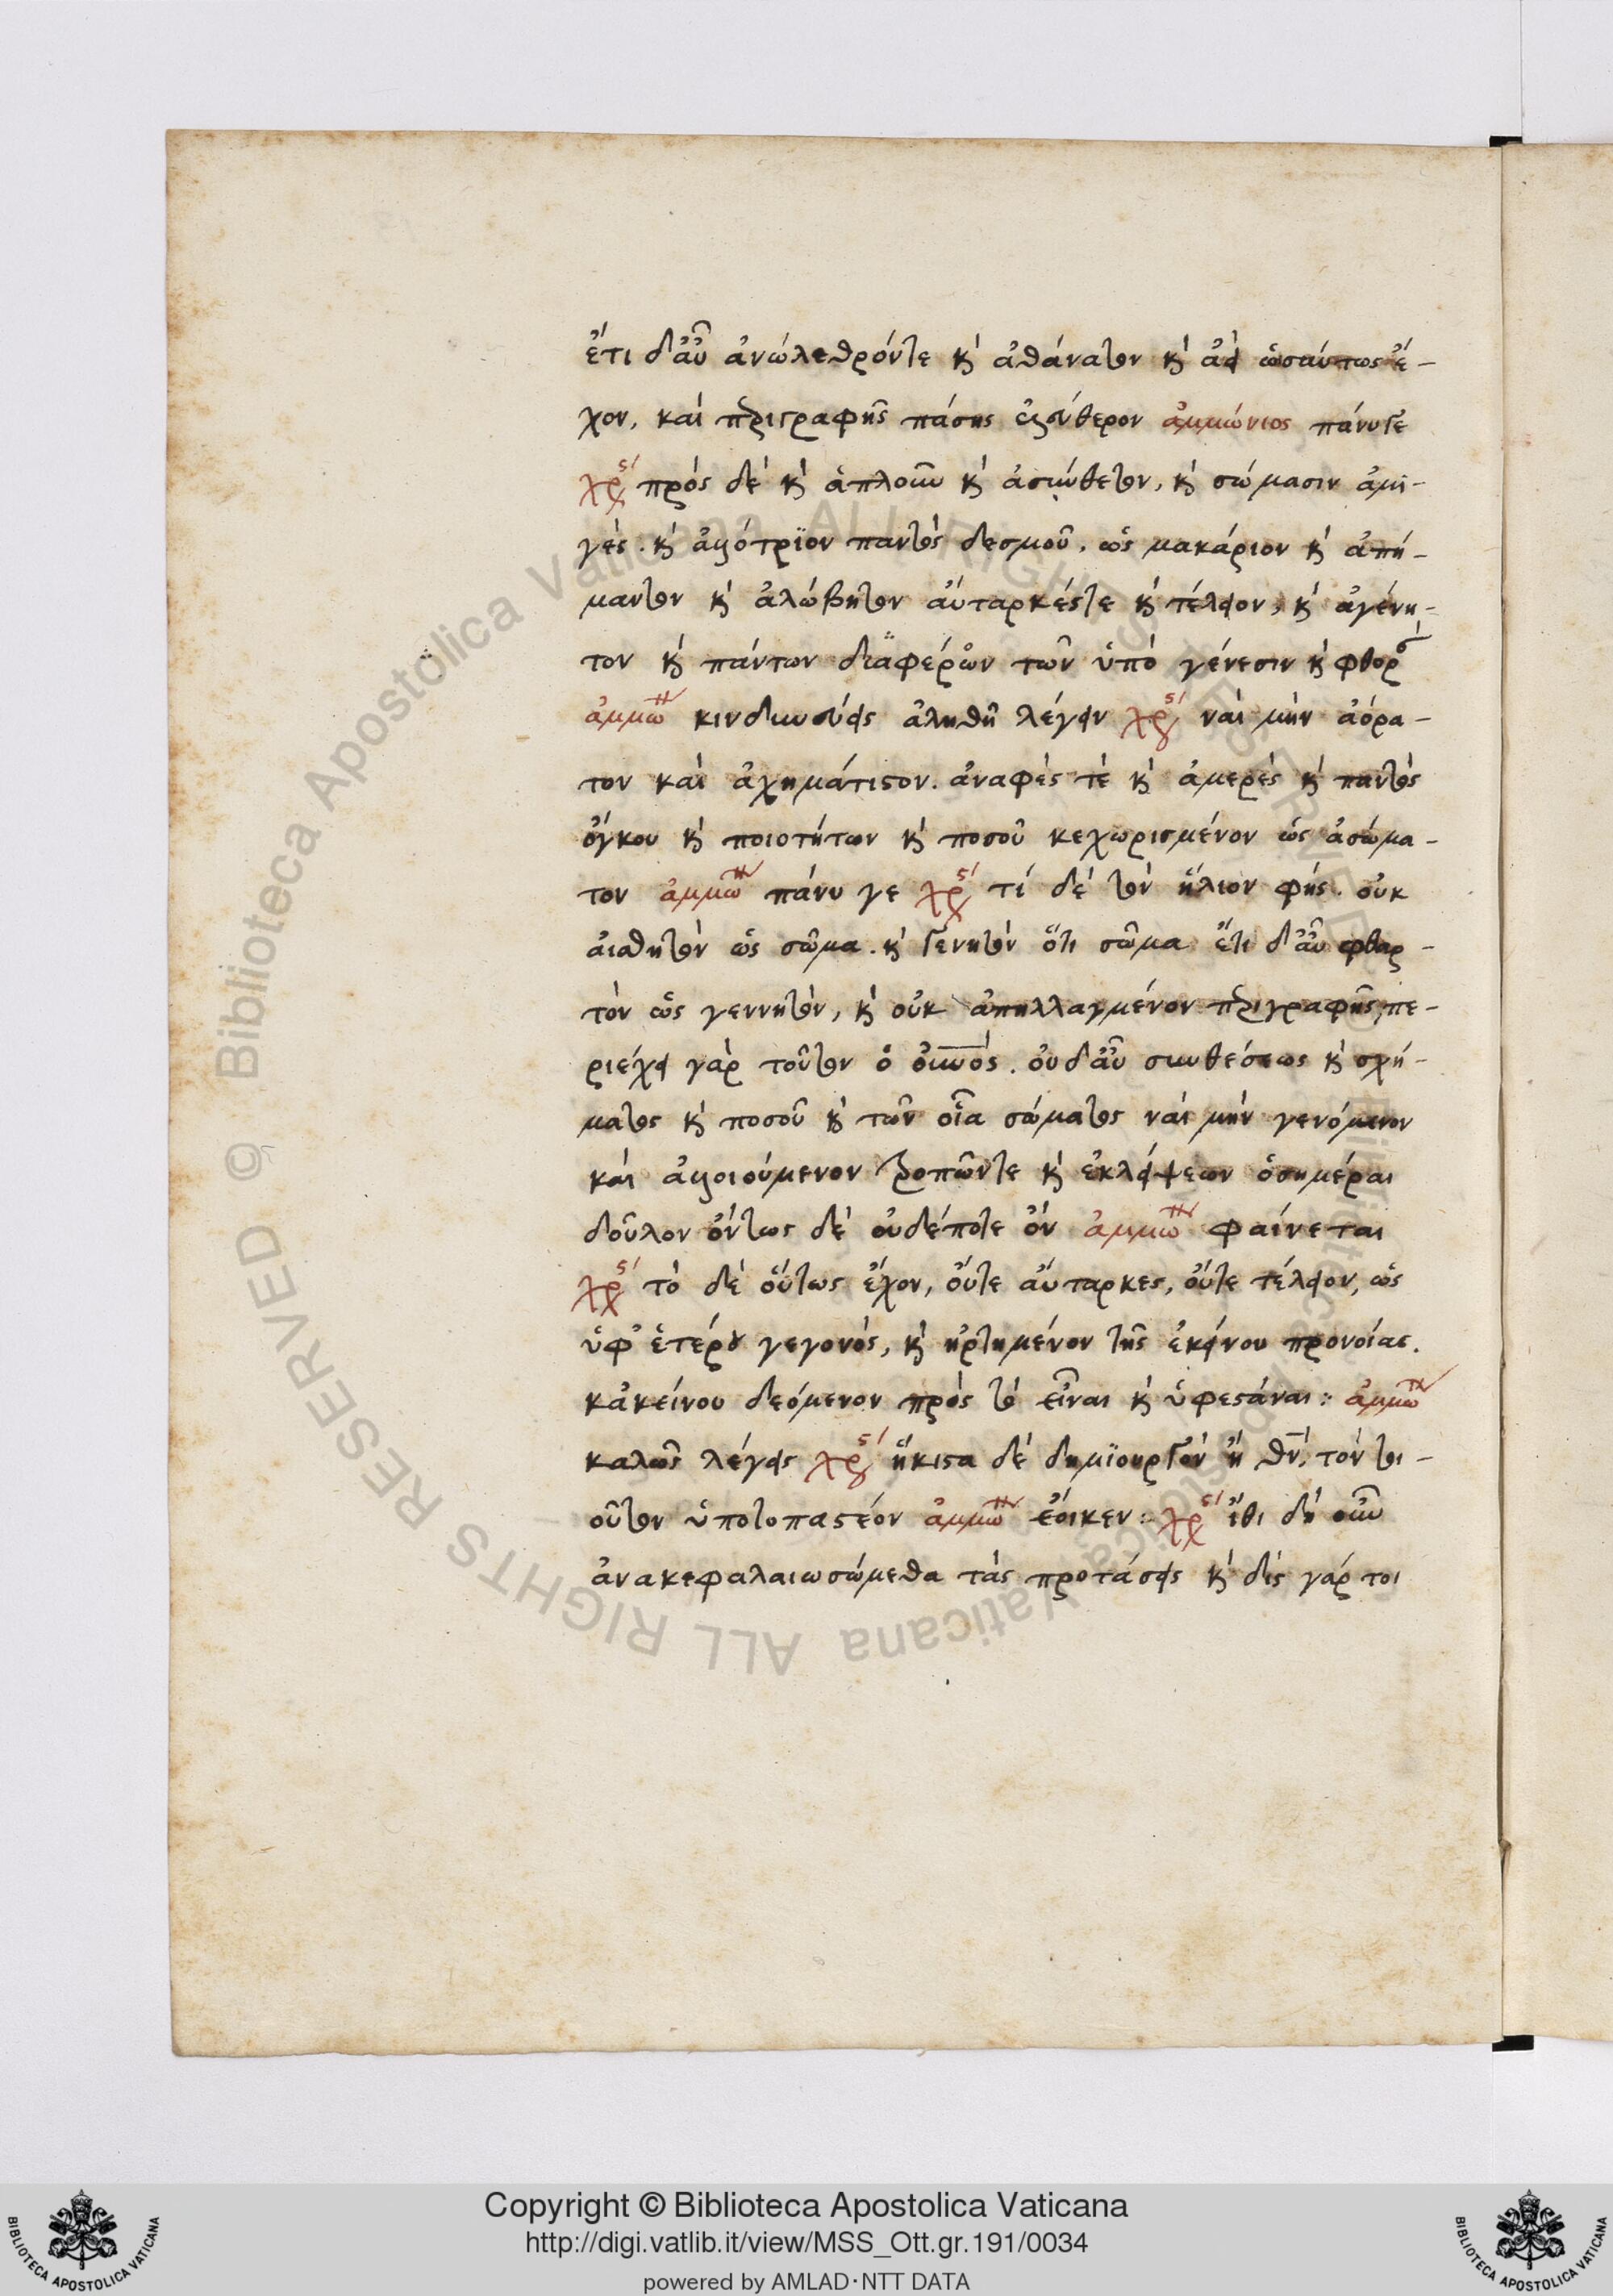 ἔτι δ' ἀῦ ἀνώλεθρόντε κὶ ἀθάνατον κὶ ἀεὶ ὡσαύτως ἔ-
χον, καὶ περιγραφῆς πάσης ἐλεύθερον ἀμμώνιος πάνυγε
χρς πρὸς δὲ κὶ ἁπλοῦν κὶ ἀσύνθετον, κὶ σώμασιν ἀμι-
γές. κὶ ἀλλότρϊον παντὸς δεσμοῦ. ὡς μακάριον κὶ ἀπή-
μαντον κὶ ἀλώβητον ἀύταρκέςτε κὶ τέλειον, κὶ ἀγένη-
τον κὶ πάντων διαφέρον τῶν ὑπὸ γένεσιν κὶ φθορ
ἀμμω κινδυνεύεις ἀληθῆ λέγειν χρς ναὶ μὴν ἀόρα-
τον καὶ ἀχημάτιςον. ἀναφές τὲ κὶ ἀμερὲς κὶ παντὸς
ὄγκου κὶ ποιοτήτων κὶ ποσοῦ κεχωρισμένον ὡς ἀσώμα-
τον ἀμμω πάνυ γε χρς τί δὲ τὸν ἥλιον φής. οὐκ
ἀισθητὸν ὡς σῶμα. κὶ γενητὸν ὅτι σῶμα ἔτι δ' ἀῦ φθαρ-
τὸν ὡς γεννητὸν, κὶ οὐκ ἀπηλλαγμένον περιγραφῆς, πε-
ριέχει γὰρ τοῦτον ὁ οὐνός. ουδ' ἀῦ συνθέσεως κὶ σχή-
ματος κὶ ποσοῦ κὶ τῶν οἷα σώματος ναὶ μὴν γενόμενον
καὶ ἀλλοιούμενον τροπῶντε κὶ ἐκλείψεων ὁσημέραι
δοῦλον ὄντως δὲ οὐδέποτε ὂν ἀμμω φαίνεται
χρς τὸ δὲ οὕτως ἔχον, οὔτε αὔταρκες, οὔτε τέλειον, ὡς
ὑφ' ἑτέρου γεγονὸς, κὶ ἠρτημένον τῆς ἐκείνου προνοίας.
κἀκείνου δεόμενον πρὸς τὸ εἶναι κὶ ὑφεςάναι: ἀμμω
καλῶς λέγεις χρς ἥκιςα δὲ δημϊουργὸν ἢ θν, τὸν τοι-
οῦτον ὑποτοπαςέον ἀμμω ἔοικεν: χρς ἴθι δὴ οὖν
ἀνακεφαλαιωσώμεθα τὰς προτάσεις κὶ δὶς γάρ τοι
Copyright © Biblioteca Apostolica Vaticana
http://digi.vatlib.it/view/MSS_Ott.gr.191/0034
powered by AMLAD·NTT DATA
BIBLIOTECA APOSTOLICA VATICANA
BIBLIOTECA APOSTOLICA VATICANA
Biblioteca Apostolica Vaticana ALL RIGHTS RESERVED ©